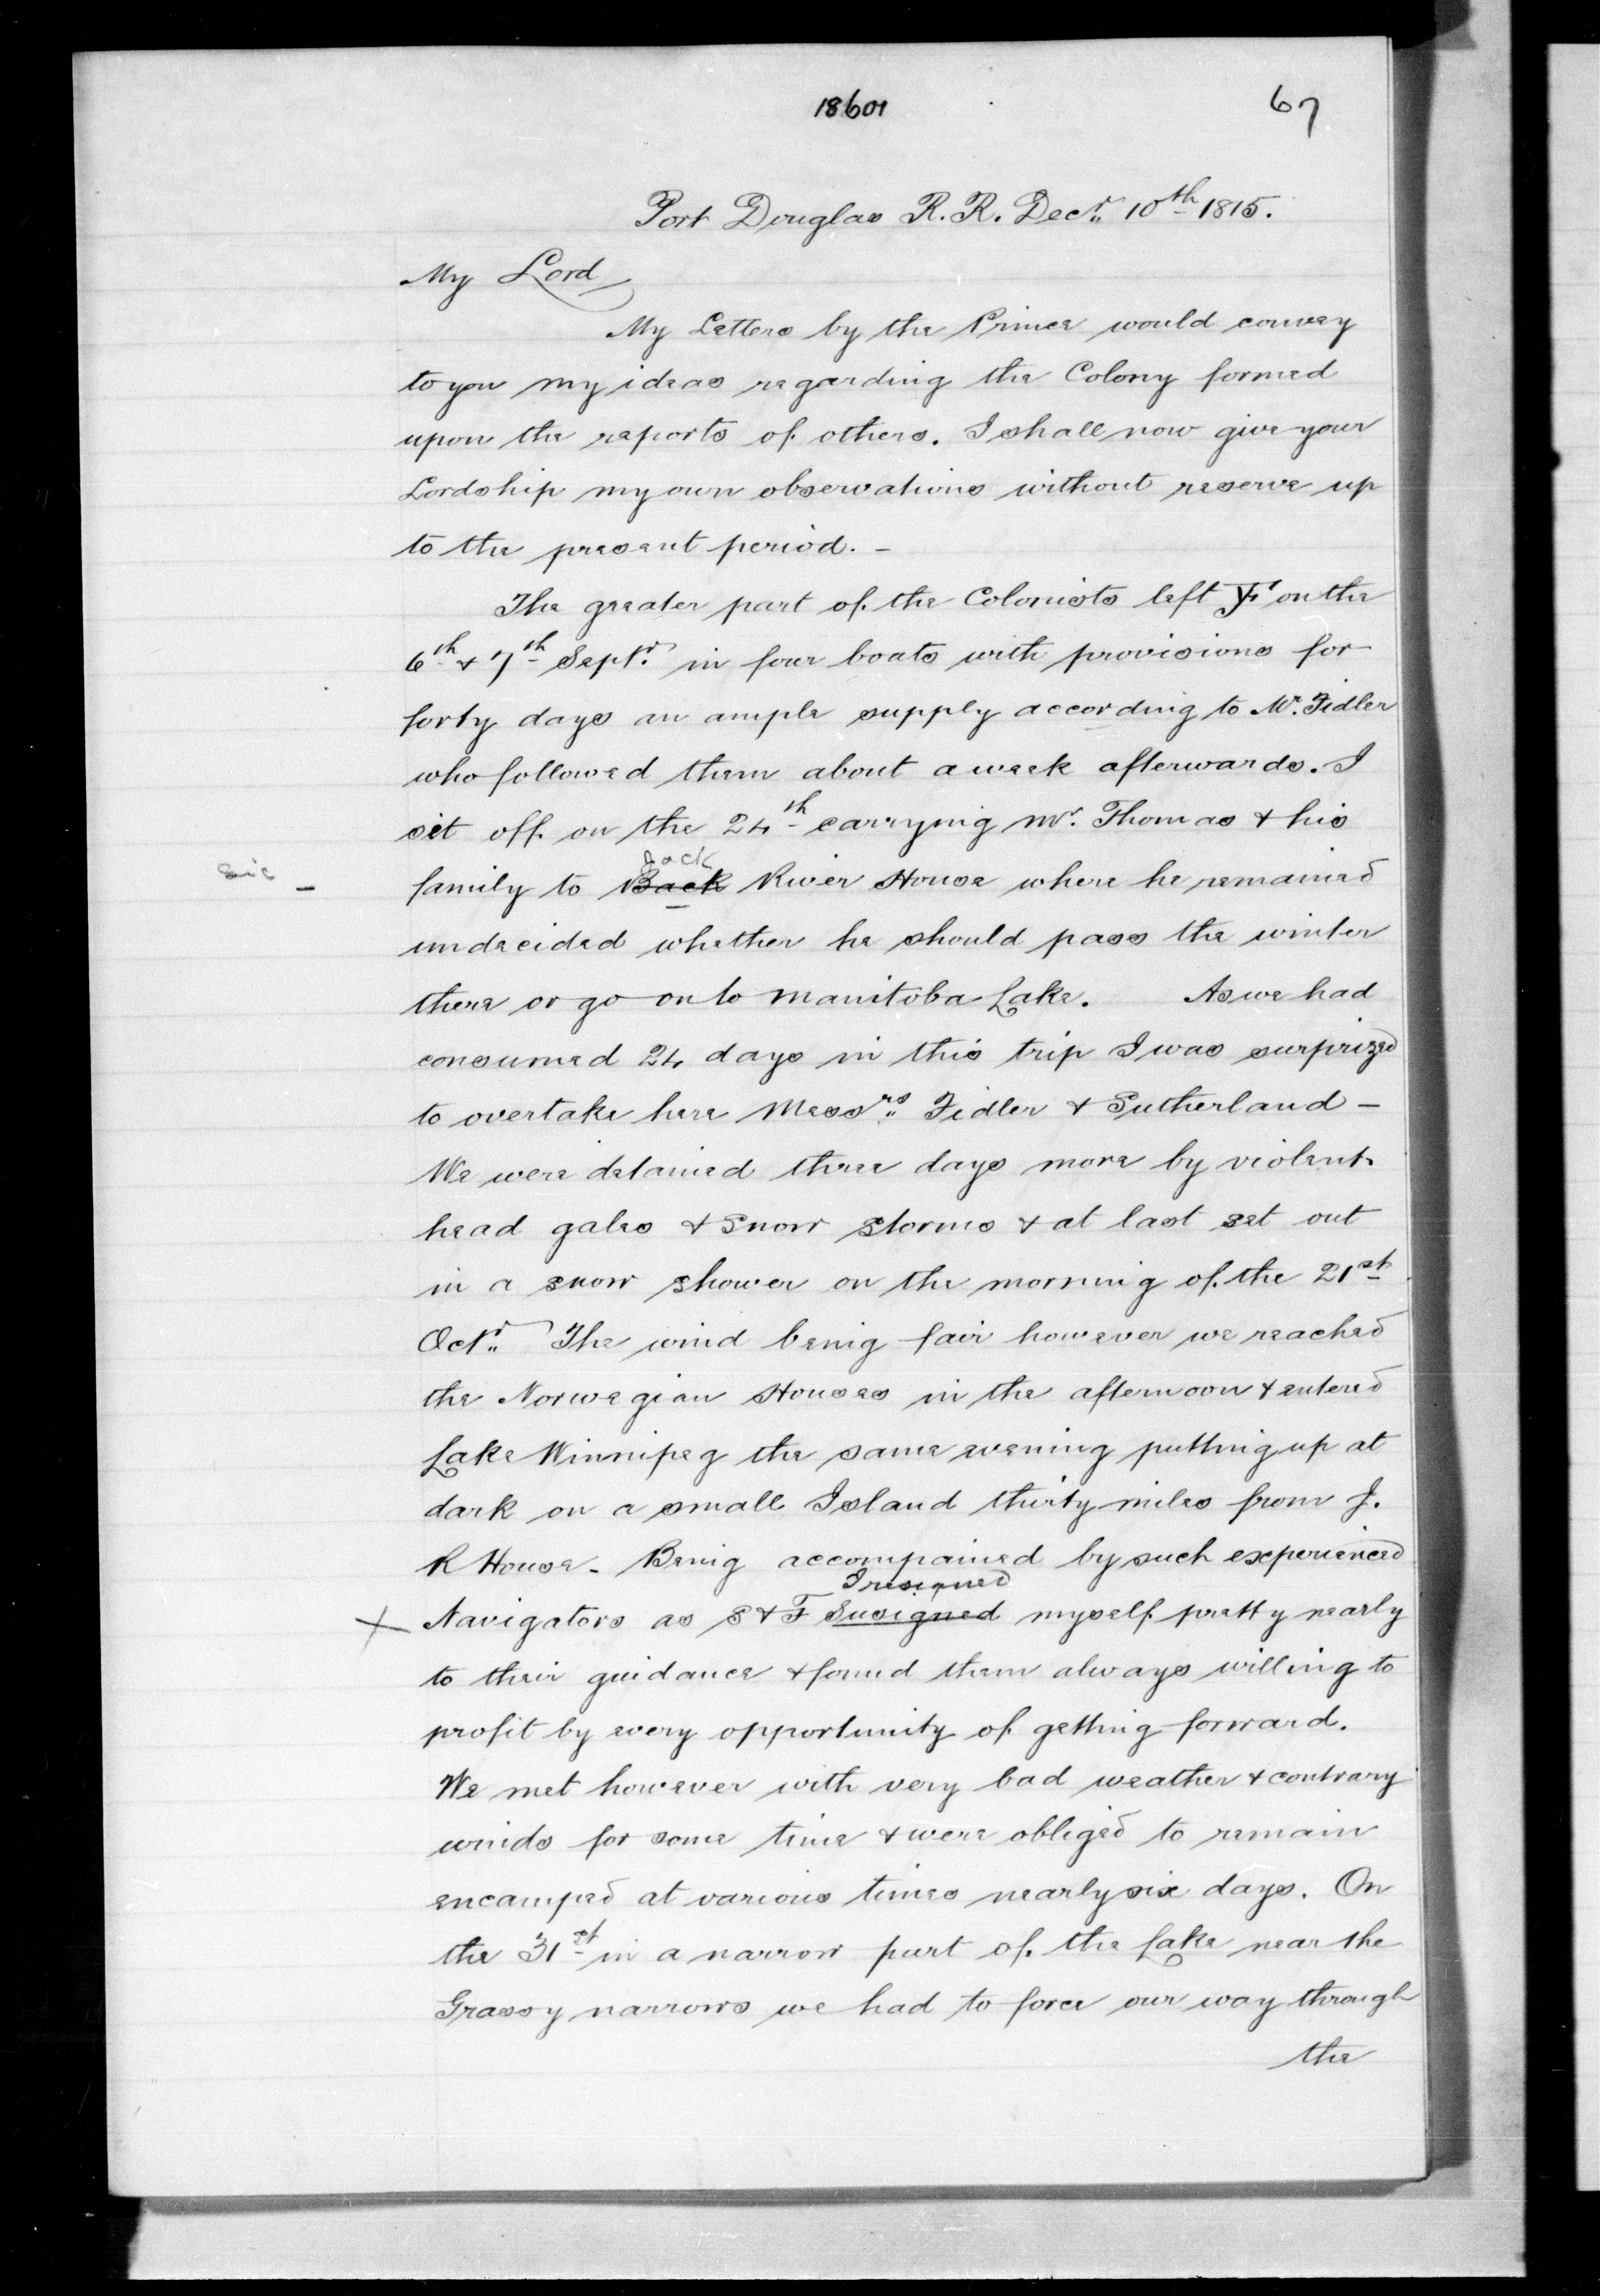 18601
67
Fort Douglas R. R. Decr. 10th 1815.
My Lord
My Letters by the Prince would convey
to you my ideas regarding the Colony formed
upon the reports of others. I shall now give your
Lordship my own observations without reserve up
to the present period. -
The greater part of the Colonists left YF on the
6th & 7th Septr. in four boats with provisions for
forty days an ample supply according to Mr. Fidler
who followed them about a week afterwards. I
set off on the 24th carrying Mr. Thomas & his
sic - family to Back Jack River House where he remained
undecided whether he should pass the winter
there or go on to Manitoba Lake. As we had
consumed 24 days in this trip I was surprized
to overtake here Messrs. Fidler & Sutherland -
We were detained three days more by violent
head gales & snow storms & at last set out
in a snow shower on the morning of the 21st
Octr. The wind being fair however we reached
the Norwegian Houses in the afternoon & entered
Lake Winnipeg the same evening putting up at
dark on a small Island thirty miles from J.
R House - Being accompained by such experienced
I resigned
x Navigators as S & F Susigned myself pretty nearly
to their guidance & found them always willing to
profit by every opportunity of getting forward.
We met however with very bad weather & contrary
winds for some time & were obliged to remain
encamped at various times nearly six days. On
the 31st in a narrow part of the Lake near the
Grassy narrows we had to force our way through
the